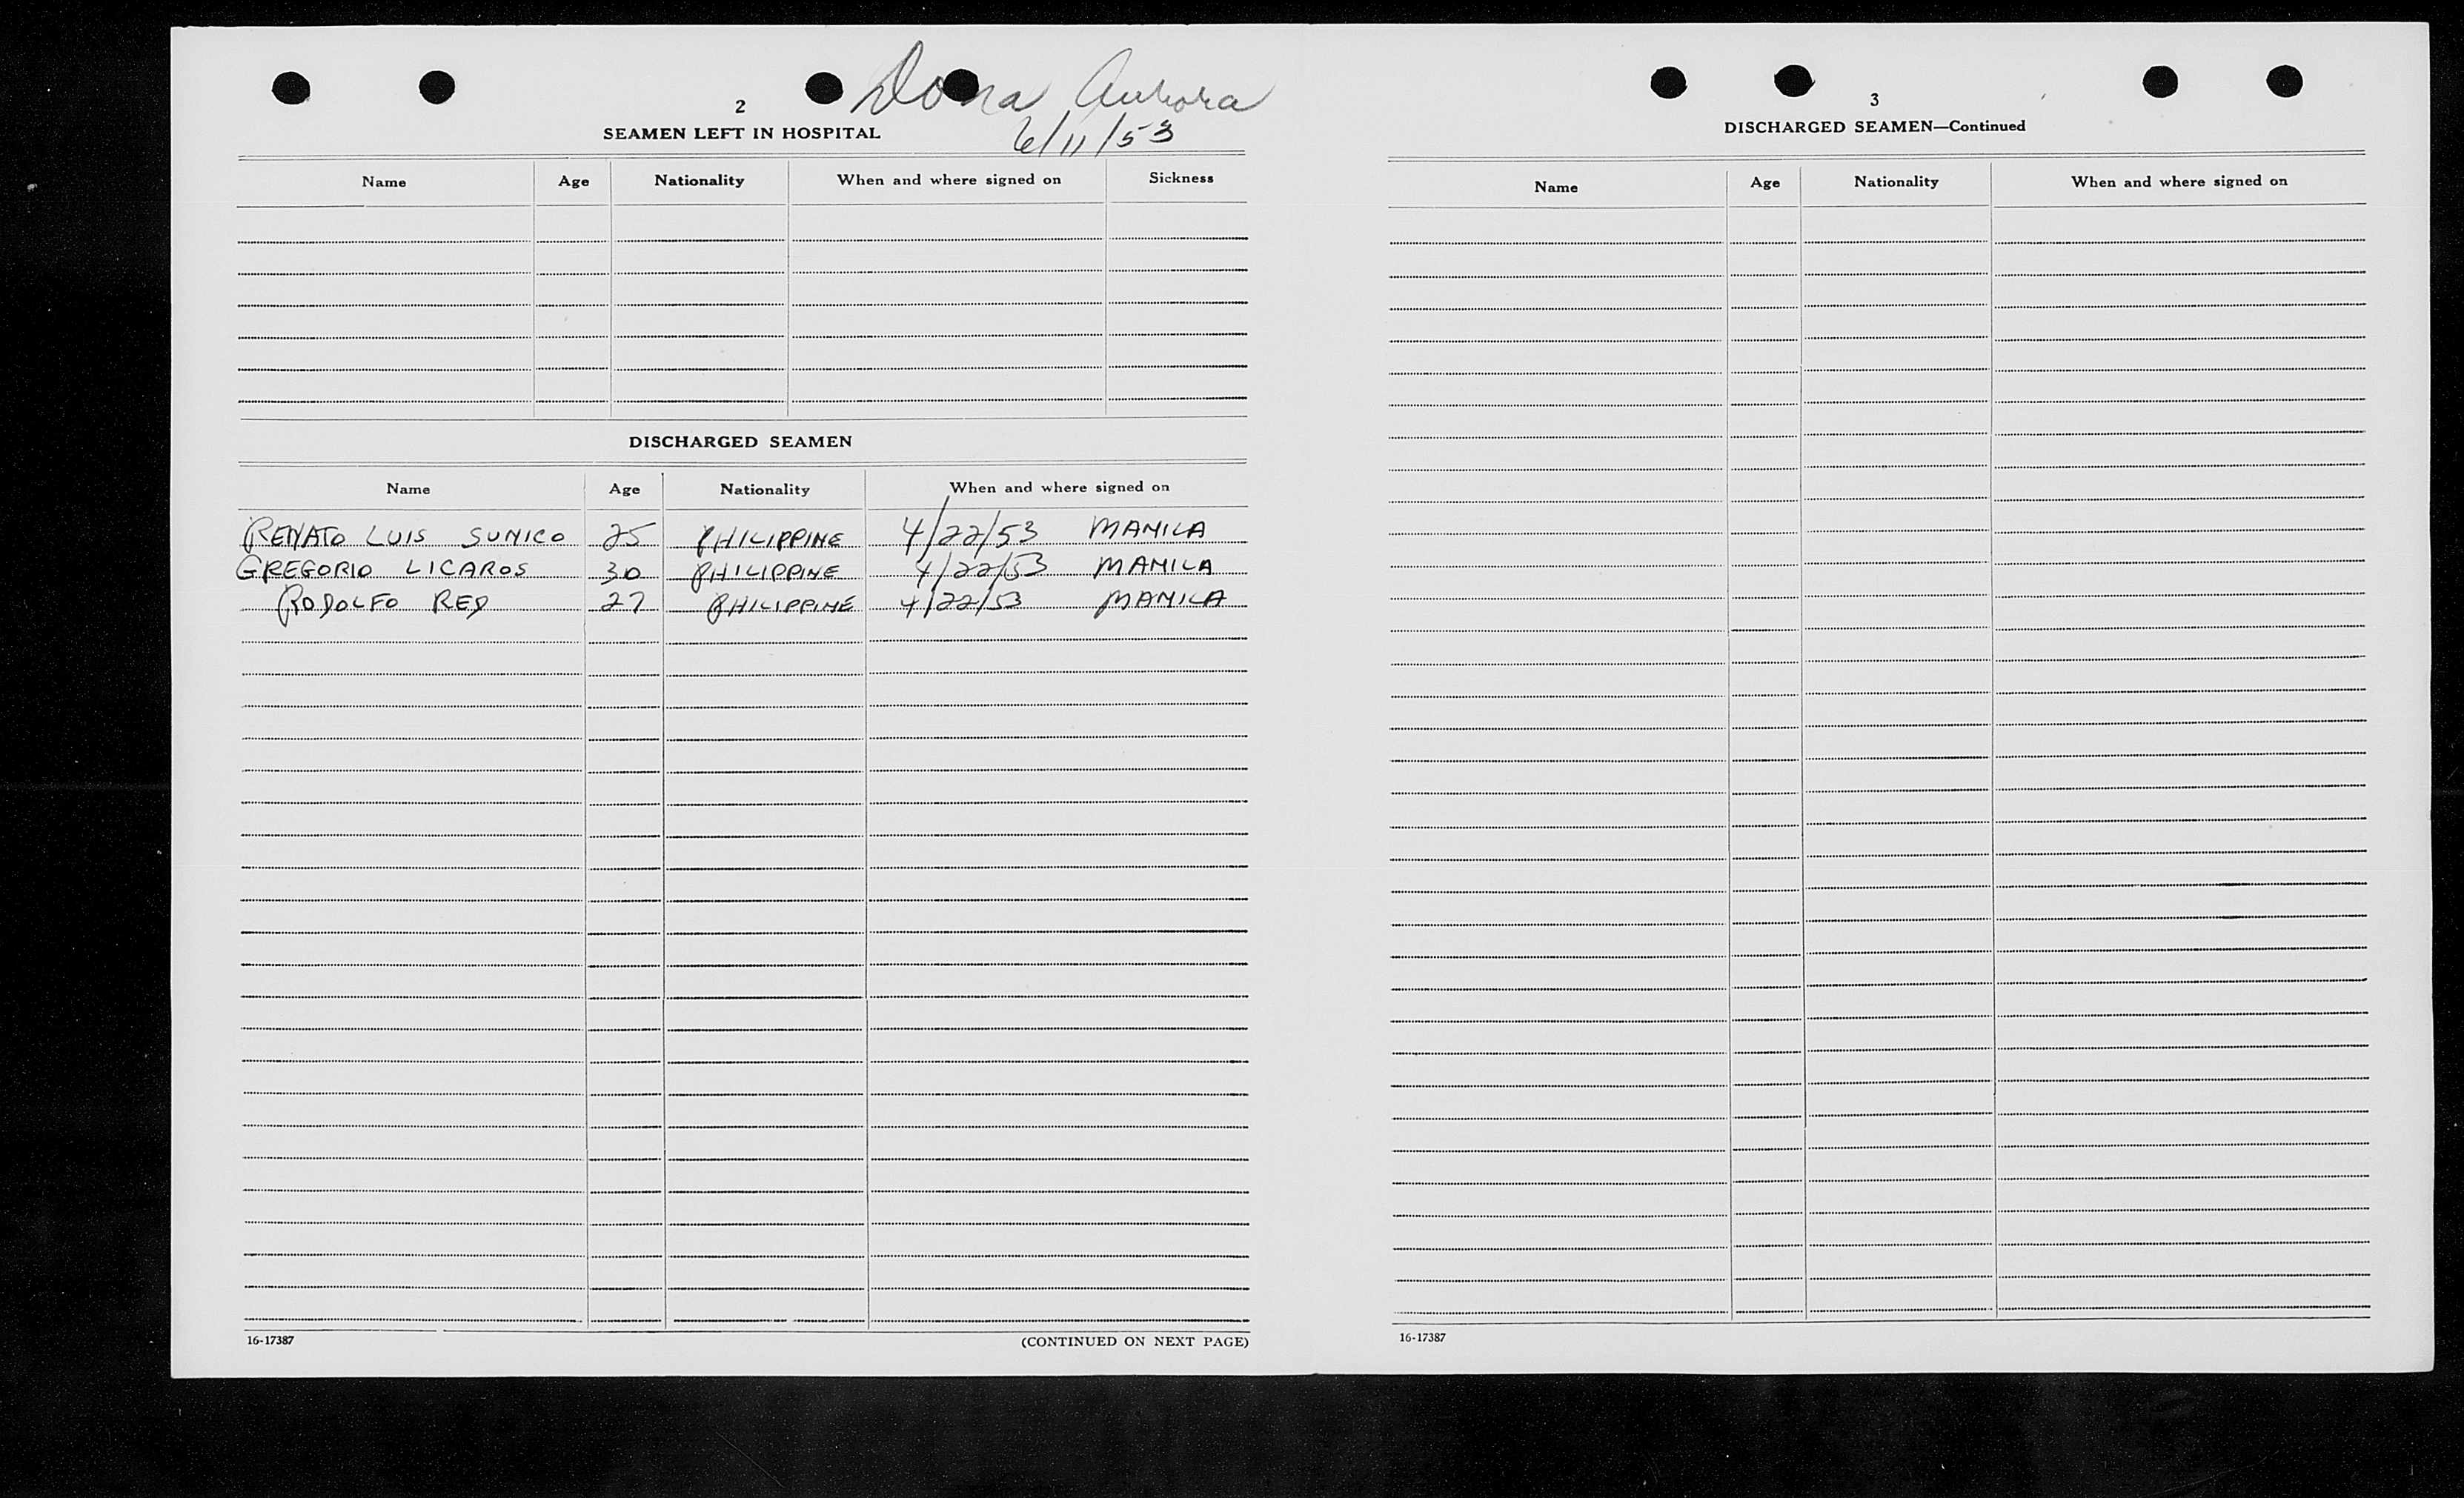 Dona Aurora
2
SEAMEN LEFT IN HOSPITAL
6/11/53
Name Age Nationality When and where signed on Sickness
DISCHARGED SEAMEN
Name Age Nationality When and where signed on
RENATO LUIS SUNICO 25 PHILIPPINE 4/22/53 MANILA
GREGORIO LICAROS 30 PHILIPPINE 4/22/53 MANILA
RODOLFO RED 27 PHILIPPINE 4/22/53 MANILA
16-17387 (CONTINUED ON NEXT PAGE)
3
DISCHARGED SEAMEN—Continued
Name Age Nationality When and where signed on
16-17387